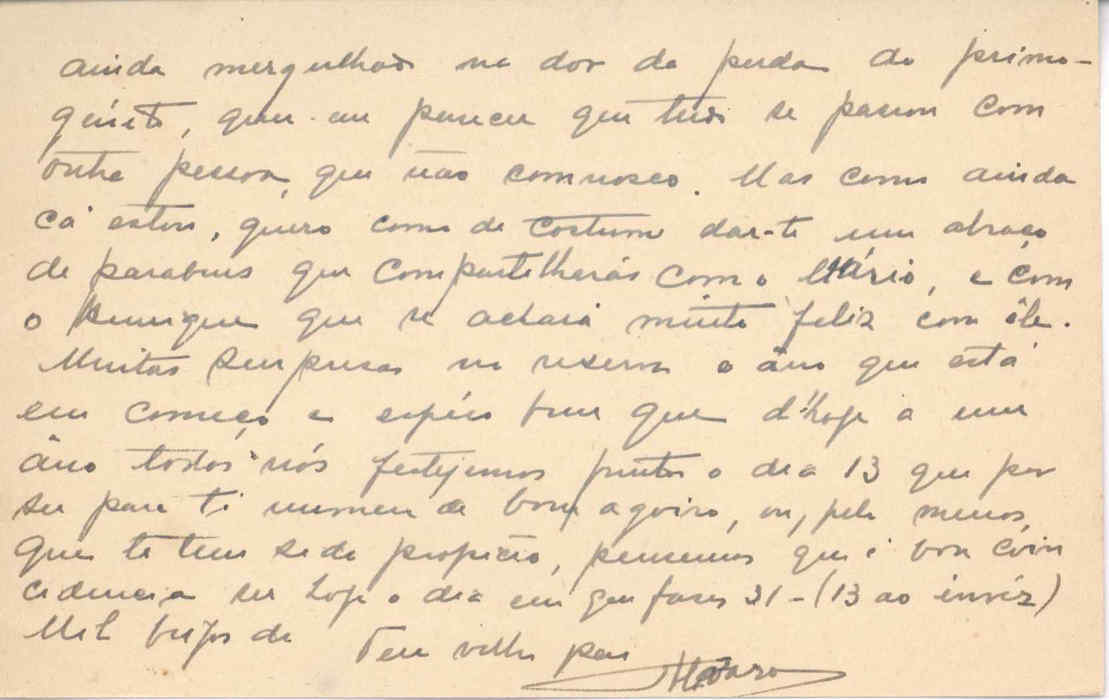 ainda mergulhado na dor da perda do primo-
génito, que me parece que tudo se passou com
outra pessoa, que não comnosco. Mas como ainda
cá estou, quero como de costume dar-te um abraço
de parabens que compartilharás com o Mário, e com
o Henrique que se achará muito feliz com êle.
Muitas surpresas nos reserva o âno que está
em começo e espero bem que d'hoje a um
âno todos nós festejemos juntos o dia 13 que por
ser para ti numero de bom agoiro, ou, pelo menos,
que te tem sido propicio, pensemos que é boa coin
cidencia ser hoje o dia em que fazes 31 - (13 ao invéz)
Mil beijos do Teu velho pai
Alvaro